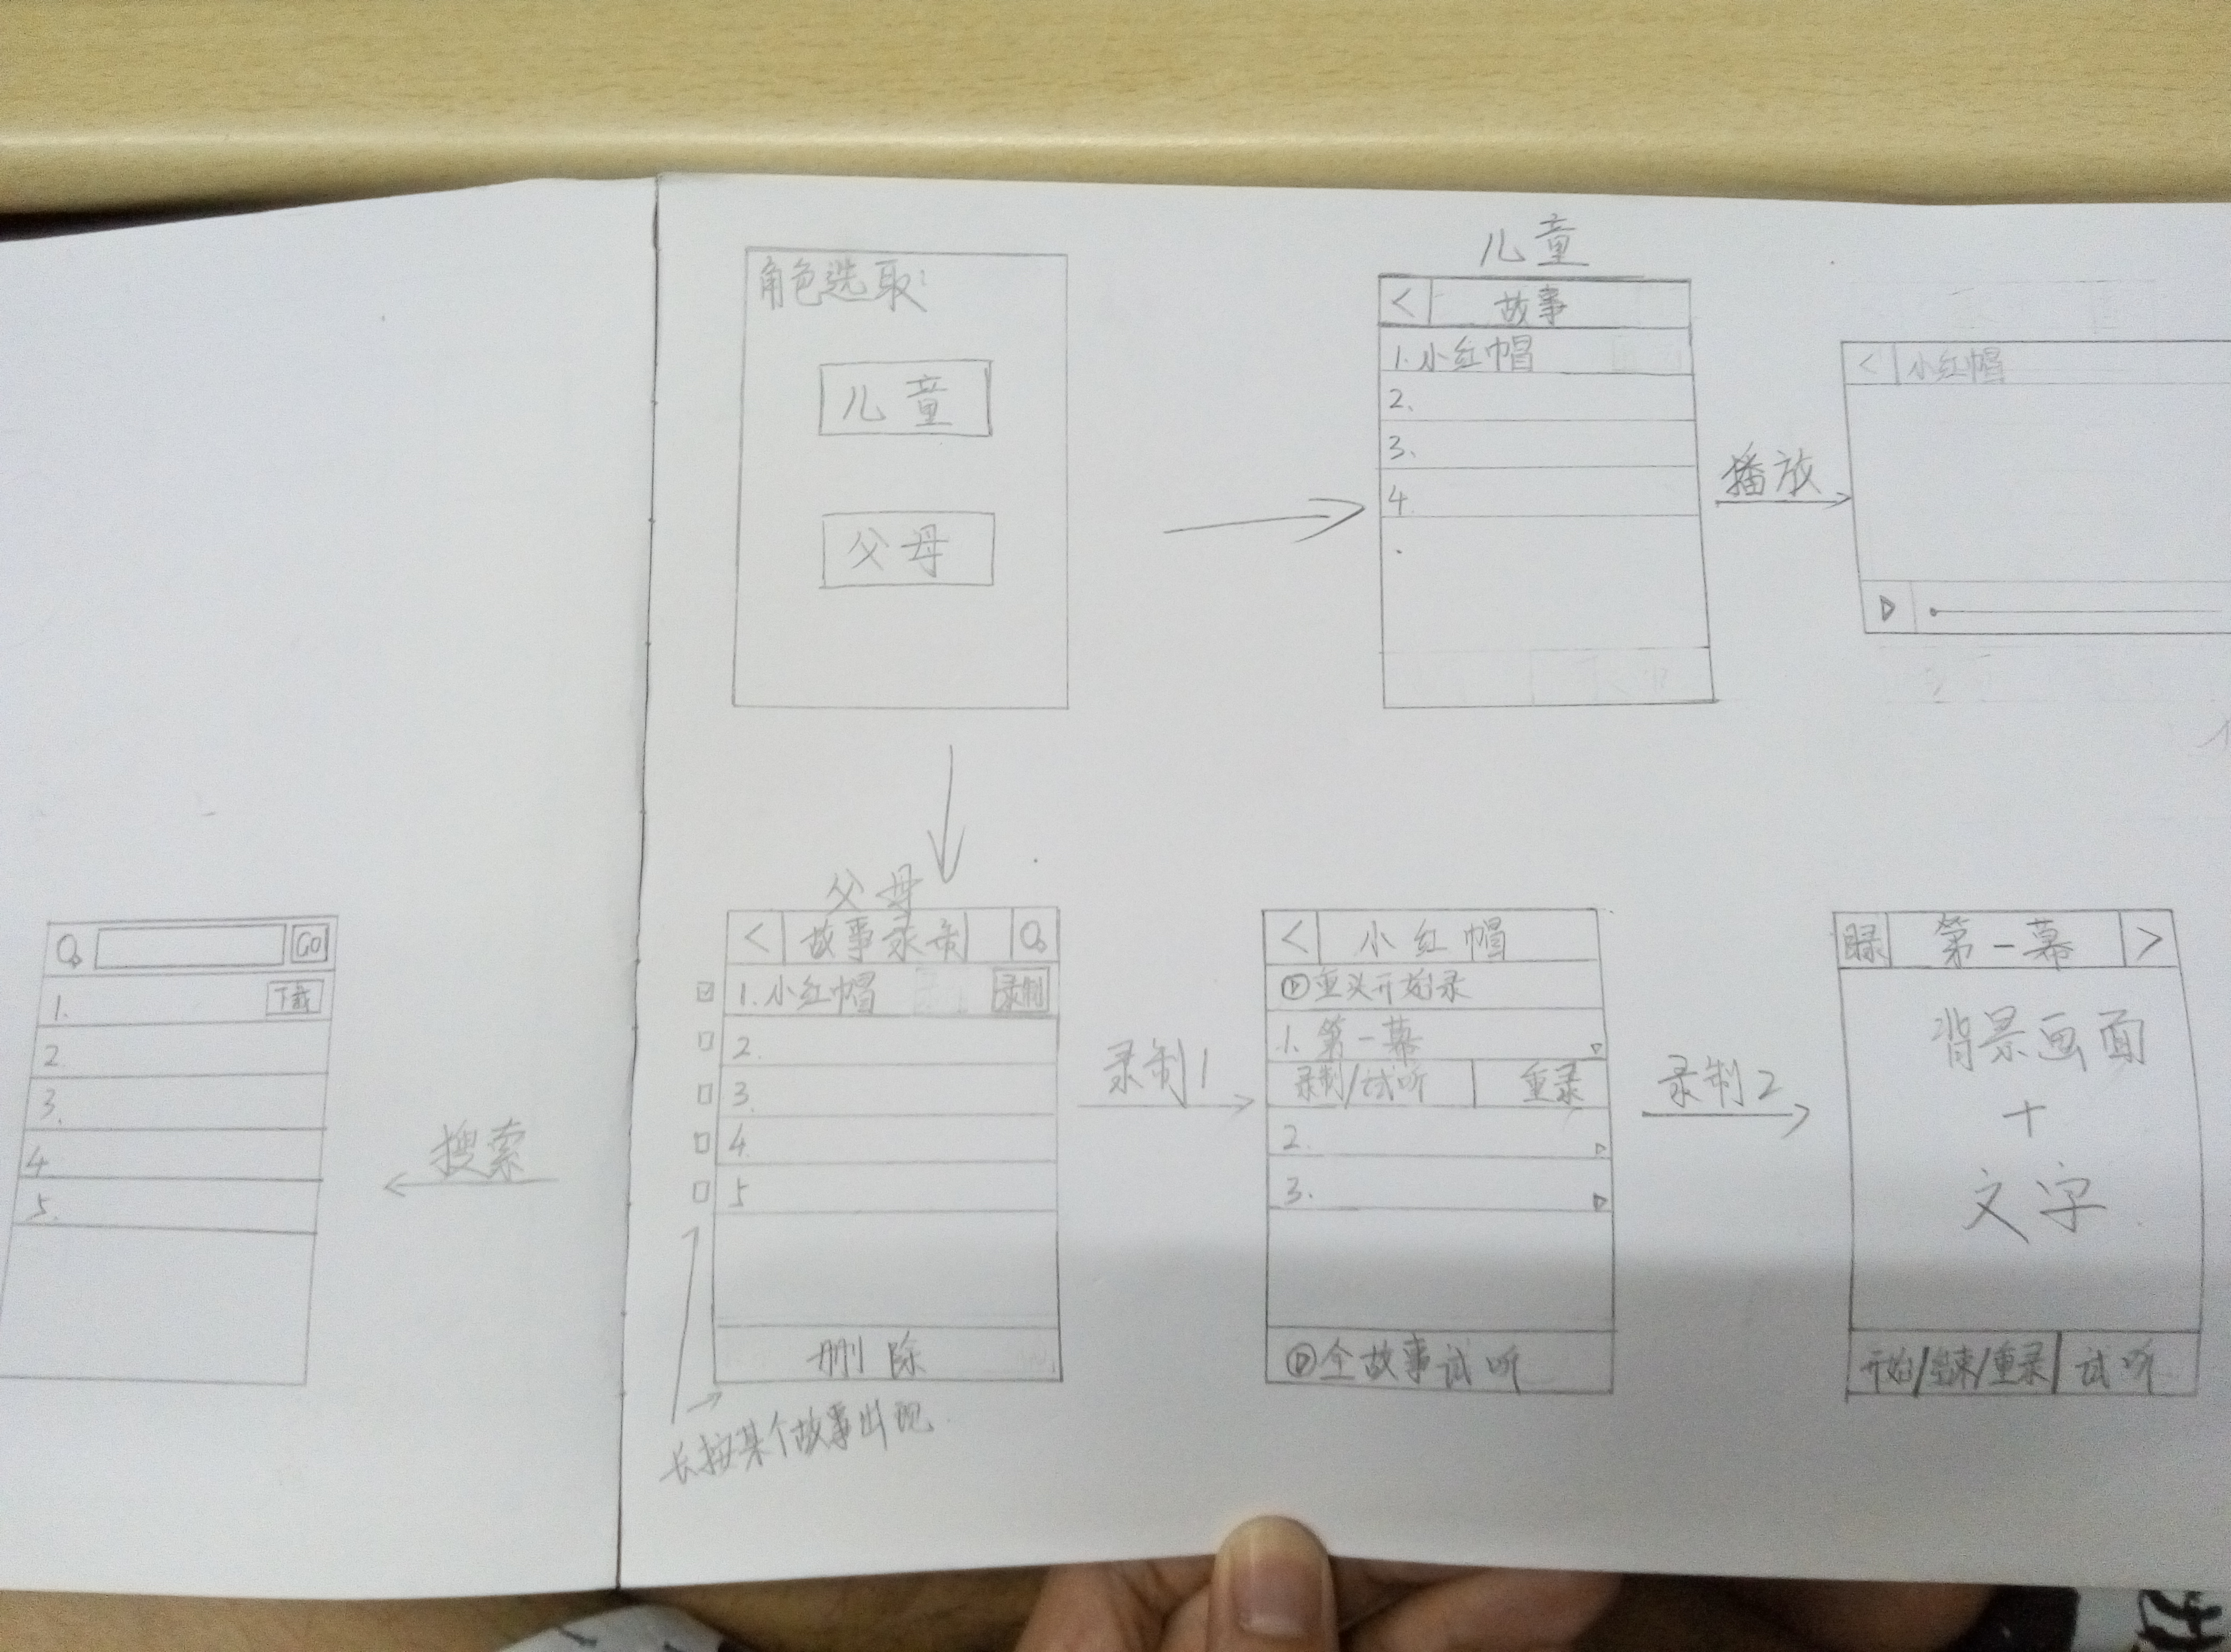 角色选取:
儿童
父母
儿童
< 故事
1. 小红帽
2、
3、
4.
播放
< 小红帽
父母
< 故事录制
1. 小红帽 录制
2.
3.
4.
5
删除
长按某个故事出现
搜索
GO
1. 下载
2.
3.
4.
5.
录制1
< 小红帽
重头开始录
1. 第一幕
录制/试听 重录
2.
3.
全故事试听
录制2
第一幕 >
背景画面
+
文字
开始/结束/重录 试听